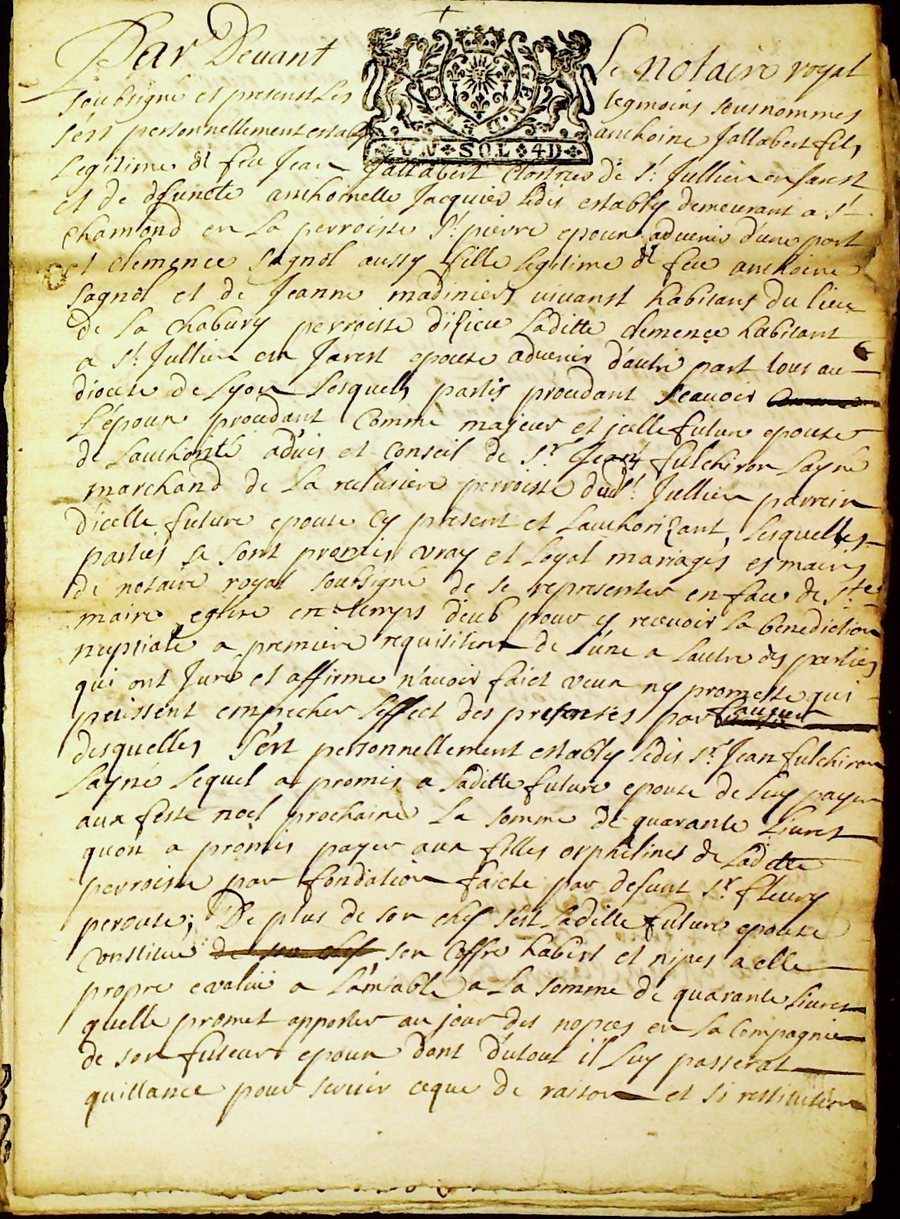 Par Devant Le notaire royal
soubsigné et present Les tegmoins sousnommes
GEN DE LION
UN · SOL · 4D
s'est personnellement estably anthoine Jallabert fils
Legitime de feu Jean Jallabert de St Jullien en Jarest
et de defuncte anthoinette Jacquier Ledis estably demeurant a St
chamond en La perroisse St pierre epoux advenir d'une part
et clemence Sagnol aussy fille Legitime de feu anthoine
Sagnol et de Jeanne madinier vivant habitans du lieu
de La chabury perroisse d'izieu Laditte clemence habitant
a St Jullien en Jarest epouse advenir dautre part tous au
diocese de Lyon Lesquels partis procedant scavoir
L'epoux procedant comme majeur et jcelle future epouse
de Lauthorité advis et conseil de Sr Jean fulchiron Layné
marchand de La perroisse dud. St Jullien parrein
dicelle future epouse cy present et Lauthorizant, Lesquelles
parties se sont promis vray et Loyal mariages es mains
de notaire royal soubsigné de se representer en face de Ste
maire eglise en temps deub pour y recevoir La benediction
nuptiale a premiere requisition de L'une a Lautre des parties
qui ont Juré et affirmé n'avoir faict veux ny promesse qui
puissent empecher Leffect des presentes par
desquelles s'est personnellement estably Ledis Sr Jean fulchiron
Layné Lequel a promis a Laditte future epouse de Luy payer
aux feste noel prochaine La somme de quarante Livres
quon a promis payer aux filles orphelines de Laditte
perroisse par fondation faicte par defunt Sr fleury
peroute; De plus de son chef s'est Laditte future epouse
constitué de son chef son coffre habits et nipes a elle
propre evalué a L'amiable a La somme de quarante Livres
quelle promet apporter au jour des nopces en La compagnie
de son futeur epoux dont dutout il Luy passerat
quittance pour servir ceque de raison et si restitution